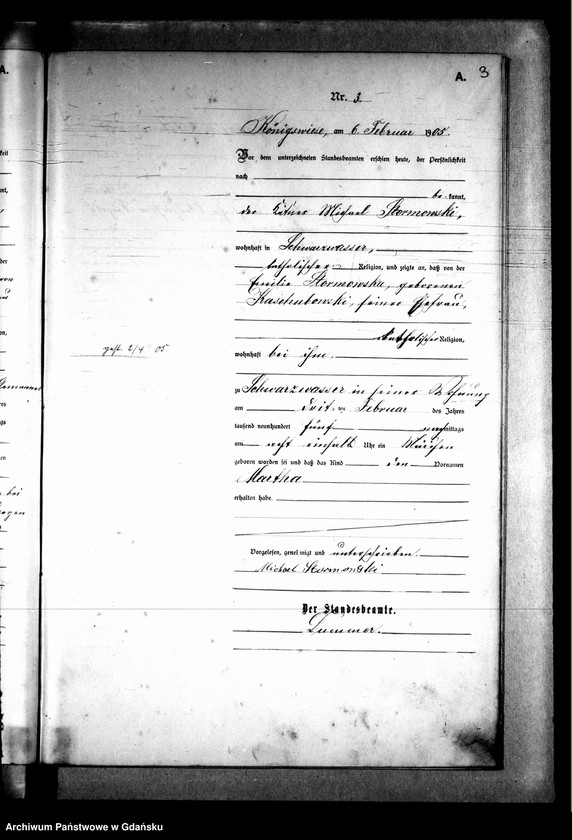 A. 3
Nr. 3
Königswiese, am 6. Februar 1905.
Vor dem unterzeichneten Standesbeamten erschien heute, der Persönlichkeit
nach
be kannt,
der Kätner Michael Stormowski,
wohnhaft in Schwarzwasser,
katholischer Religion, und zeigte an, daß von der
Emilie Stormowska, geborenen
Kaschubowski, seiner Ehefrau,
katholischer Religion,
wohnhaft bei ihm,
gest. 2/4 05
zu Schwarzwasser in seiner Wohnung
am dritten Februar des Jahres
tausend neunhundert fünf mittags
um acht einhalb Uhr ein Mädchen
geboren worden sei und daß das Kind den Vornamen
Martha
erhalten habe.
Vorgelesen, genehmigt und unterschrieben.
Michael Stormowski
Der Standesbeamte.
Archiwum Państwowe w Gdańsku